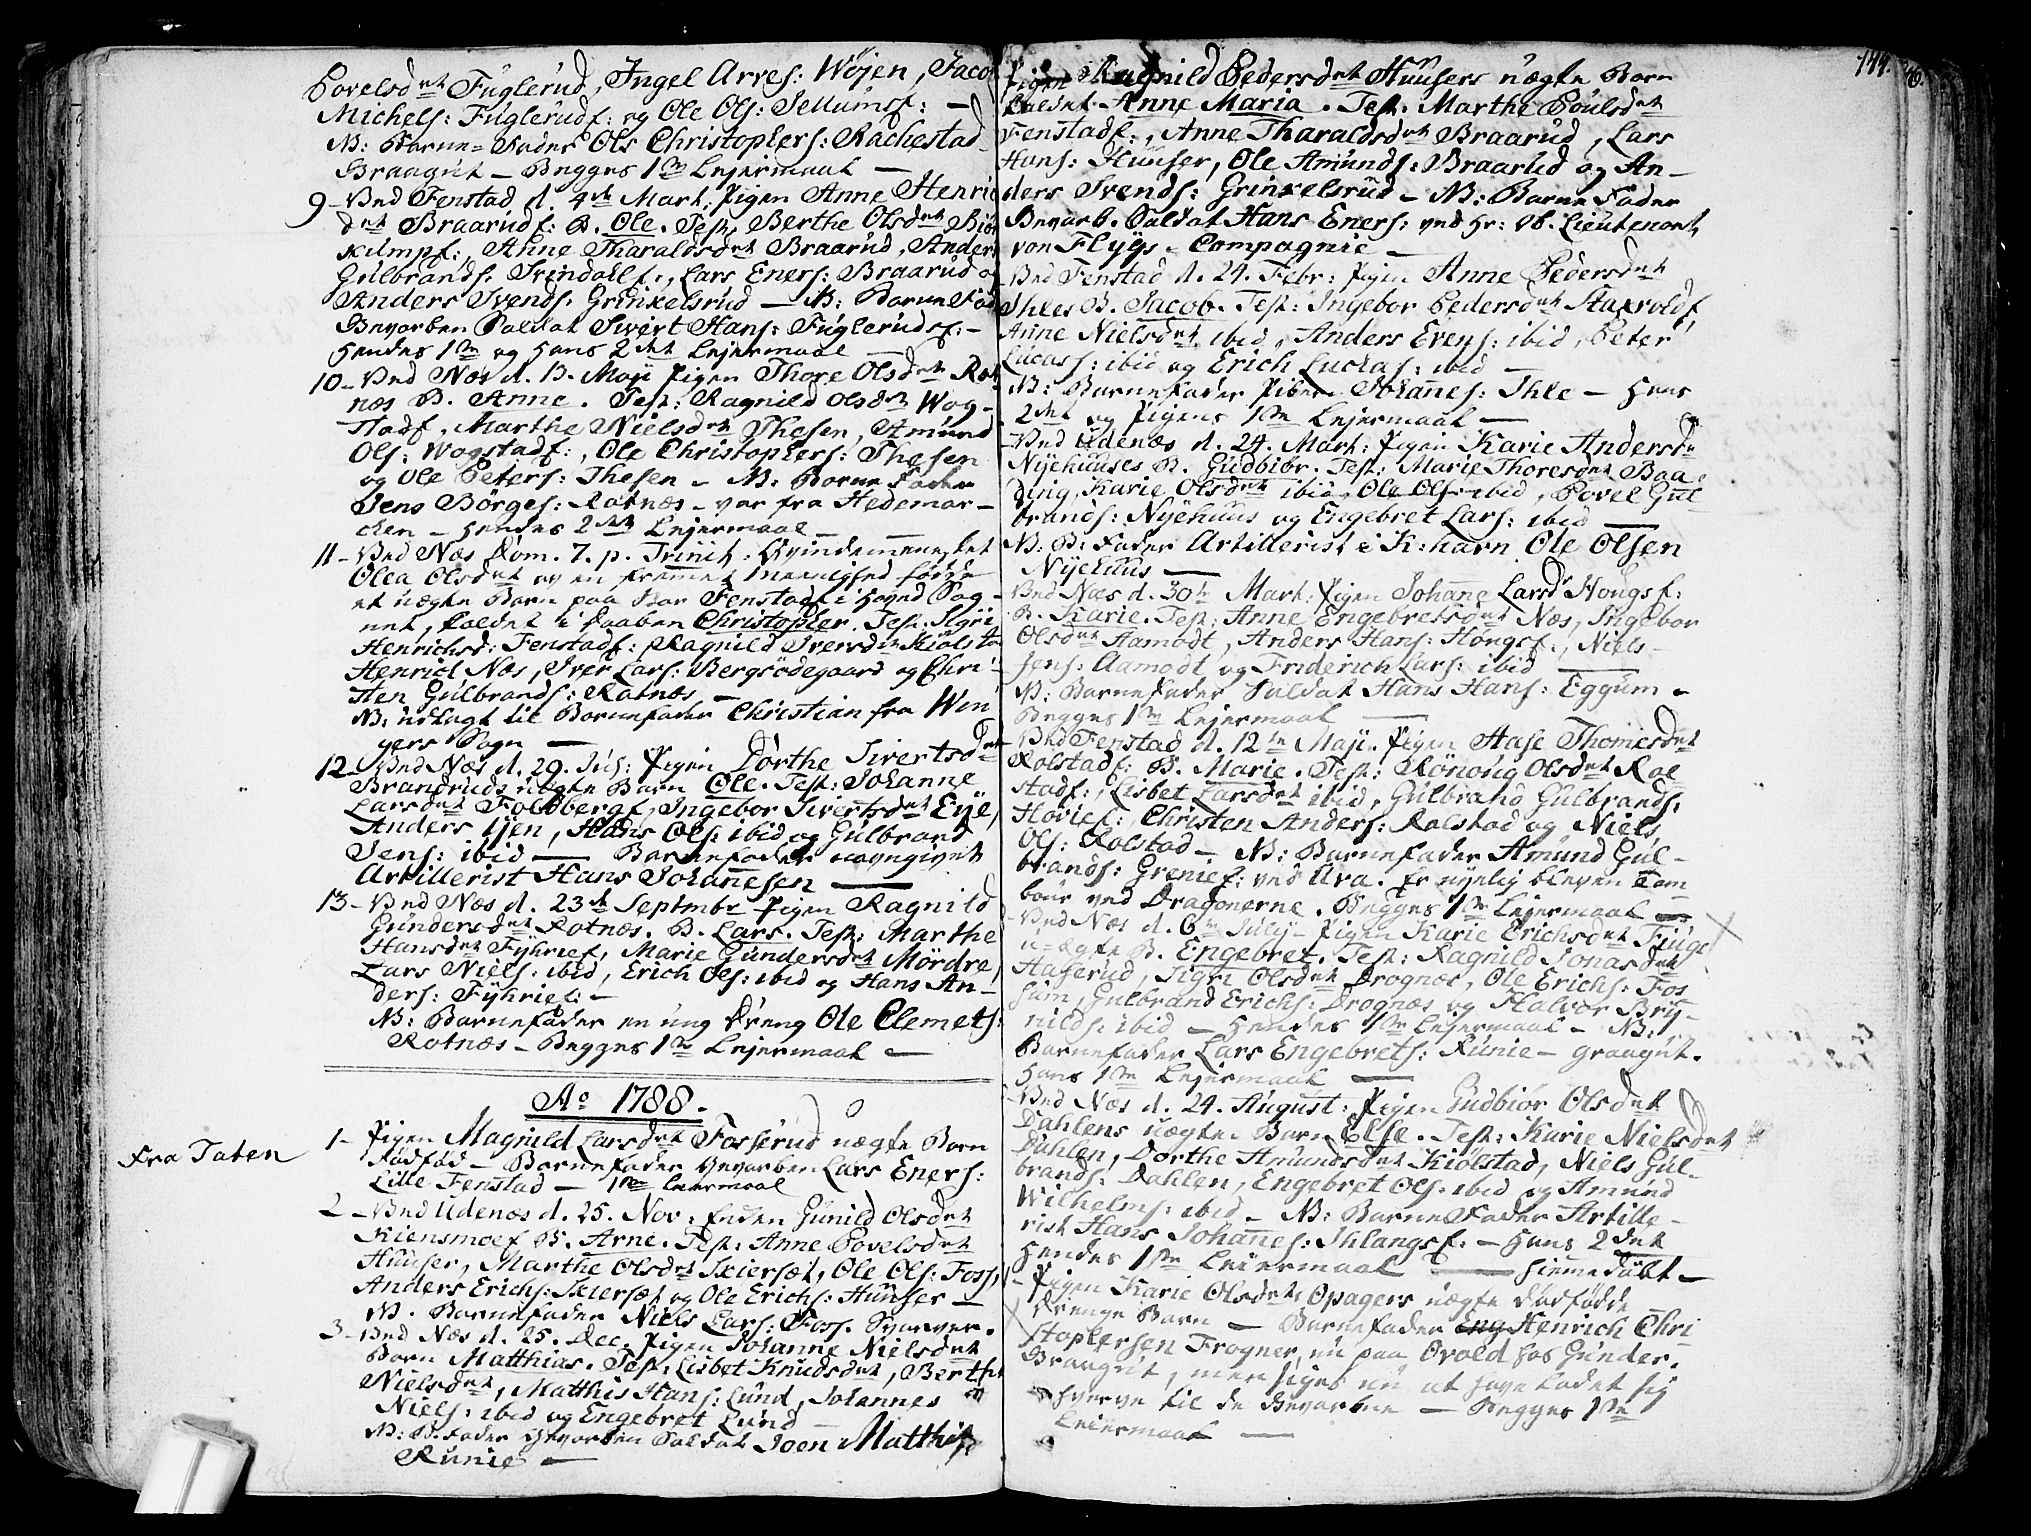 Povelsdat Fuglerud, Ingel Arves: Wøjen, Jacob
Michels: Fuglerudf: og Ole Ols: Sellumsf: —
NB: Barne-Fader Ols Christophers: Rachestad
Braagut — Begges 1ste Lejermaal —
9 – Ved Fenstad d. 4de Mart: Pigen Anne Henrichs
dat Braarudf: B. Ole. Test: Berthe Olsdat
Anne Tharaldsdat Braarud, Anders
Gulbrands: Svindahlf:, Lars Eners: Braarud og
Anders Svends: Grinkelsrud — NB: Barne Fader
Gevorben Soldat Sivert Hans: Fuglerudsf: –
hendes 1ste og hans 2det Lejermaal —
10 – Ved Næs d. 13. Maji Pigen Thore Olsdat Rot
næs B. Anne. Test: Ragnild Olsdat Wog-
stadf, Marthe Nielsdat Thesen, Amund
Ols: Wogstadf:, Ole Christophers: Thesen
og Ole Peters: Thesen – NB: Barne Fader
Jens Börges: Rotnæs – var fra Hedemar-
chen – hendes 2det Lejermaal –
11 – Ved Næs Dom. 7. p. Trinit: Qvindemennesket
Olea Olsdat og en fremmet
et uægte Barn paa Fenstadf i Hoved Sog-
net, kaldet i Daaben Christopher. Test: Sigri
Henrichsd: Fenstadf: Ragnild Iversdat Kiølsta
Henrich Næs, Iver Lars: Bergsødegaard og Chri-
sten Gulbrands: Rotnæs –
NB: udlagt til Barnefader Christian fra Win
gers Sogn —
12 – Ved Næs d. 29. Jul: Pigen Dorthe Sivertsdat
Brandruds uægte Barn Ole. Test: Johanne
Larsdat Foldbergf, Ingebor Sivertsdat Eye,
Anders Ijen, Hans Ols: ibid og Gulbrand
Jens: ibid — Barnefader angivet
Artillerist Hans Johannesen —
13 – Ved Næs d. 23de Septembr Pigen Ragnild
Gundersdat Rotnæs. B. Lars. Test: Marthe
Hansdat Fyhrief, Marie Gundersdat Mørdre,
Lars Niels: ibid, Erich Ols: ibid og Hans An-
ders: Fyhrief: –
NB: Barnefader en ung Dreng Ole Clemets:
Rotnæs – Begges 1ste Lejermaal —
Ao 1788.
Fra Taten
1 – Pigen Magnild Larsdat Fosserud uægte Barn
Dødfød – Barnefader Gevorben Lars Eners:
Lille Fenstad — 1ste Leiermaal
2 – Ved Udenæs d. 25. Nov: Enken Gunild Olsdat
Kiensmoef B. Arne. Test: Anne Povelsdat
Huuser, Marthe Olsdat Skiersæt, Ole Ols: Foss,
Anders Erichs: Skiersæt og Ole Erichs: Huuser —
NB. Barnefader Niels Lars: Foss. Svarver.
3 – Ved Næs d. 25. Dec. Pigen Johanne Nielsdat
Barn Matthias. Test: Lisbet Knudsdat, Berthe
Nielsdat, Matthis Hans: Lund, Johannes
Niels: ibid og Engebret Lund –
NB: B. Fader Gevorben Soldat Joen Matthis:
Runie —
144.
Pigen Ragnild Pedersdat Huusers uægte Barn
kaldet Anne Maria. Test: Marthe Poulsdat
Fenstadf:, Anne Tharaldsdat Braarud, Lars
Hans: Huuser, Ole Amunds: Braarud og An-
ders Svends: Grinkelsrud – NB: Barne Fader
Gevorb. Soldat Hans Eners: ved Hr: Ob. Lieutenant
von Flygs Compagnie –
Ved Fenstad d. 24. Febr: Pigen Anne Pedersdat
Ihles B. Jacob. Test: Ingebor Pedersdat
Anne Nielsdat ibid, Anders Evens: ibid, Peter
Lucass: ibid og Erich Lucas: ibid –
NB: Barnefader Piber Johannes: Ihle – Hans
2det og Pigens 1ste Lejermaal —
Ved Udenæs d. 24. Mart: Pigen Karie Andersda
Nyehuuses B. Gudbiør. Test: Marie Thoresdat Baa-
ding, Karie Olsdat ibid, Ole Ols: ibid, Povel Gul-
brands: Nyehuus og Engebret Lars: ibid —
NB: B: Fader Artillerist i K:havn Ole Olsen
Nyehuus —
Ved Næs d. 30te Mart: Pigen Johane Larsd Hougsf:
B. Karie. Test: Anne Engebretsdat Næs, Ingebor
Olsdat Aamodt, Anders Hans: Hougsf:, Niels
Jens: Aamodt og Friderich Lars: ibid —
NB: Barnefader Soldat Hans Hans: Eggum –
Begges 1ste Lejermaal —
Ved Fenstad d. 12te Maji. Pigen Aase Thomesdat
Rolstadf: B. Marie. Test: Rønnoug Olsdat Rol
stadf:, Lisbet Larsdat ibid, Gulbrand Gulbrands:
Hovief: Christen Anders: Rolstad og Niels
Ols: Rolstad – NB: Barnefader Amund Gul-
brands: Grenief: ved Ara. Er nyelig bleven Tam
bour ved Dragonerne. Begges 1ste Lejermaal —
Ved Næs d. 6te Julij Pigen Karie Erichsdat
u-ægte B. Engebret. Test: Ragnild Jonasdat
Haserud, Sigri Olsdat Drognæs, Ole Erichs: Fos
sum, Gulbrand Erichs: Drognæs og Halvor Bry-
nilds: ibid – hendes 1ste Lejermaal – NB:
Barnefader Lars Engebrets: Runie –
hans 1ste Lejermaal —
Ved Næs d. 24. August: Pigen Gudbiør Olsdat
Dahlens uægte Barn Else. Test: Karie Nielsdat
Dahlen, Dorthe Amundsdat Kiølstad, Niels Gul-
brands: Dahlen, Engebret Ols: ibid og Amund
Wilhelms: ibid – NB: Barne Fader Artille-
rist Hans Johannes: Ihlangsf: – Hans 2det
Hendes 1ste Leiermaal — Hiemedøbt –
Pigen Karie Olsdat Opagers uægte dødfødde
Drenge Barn — Barnefader Henrich Chri
stophersen Frogner, nu paa Ovold hos Gunder.
Braagut, men siges nu at have ladet sig
hverve til de Gevorbne — Begges 1ste
Leiermaal —